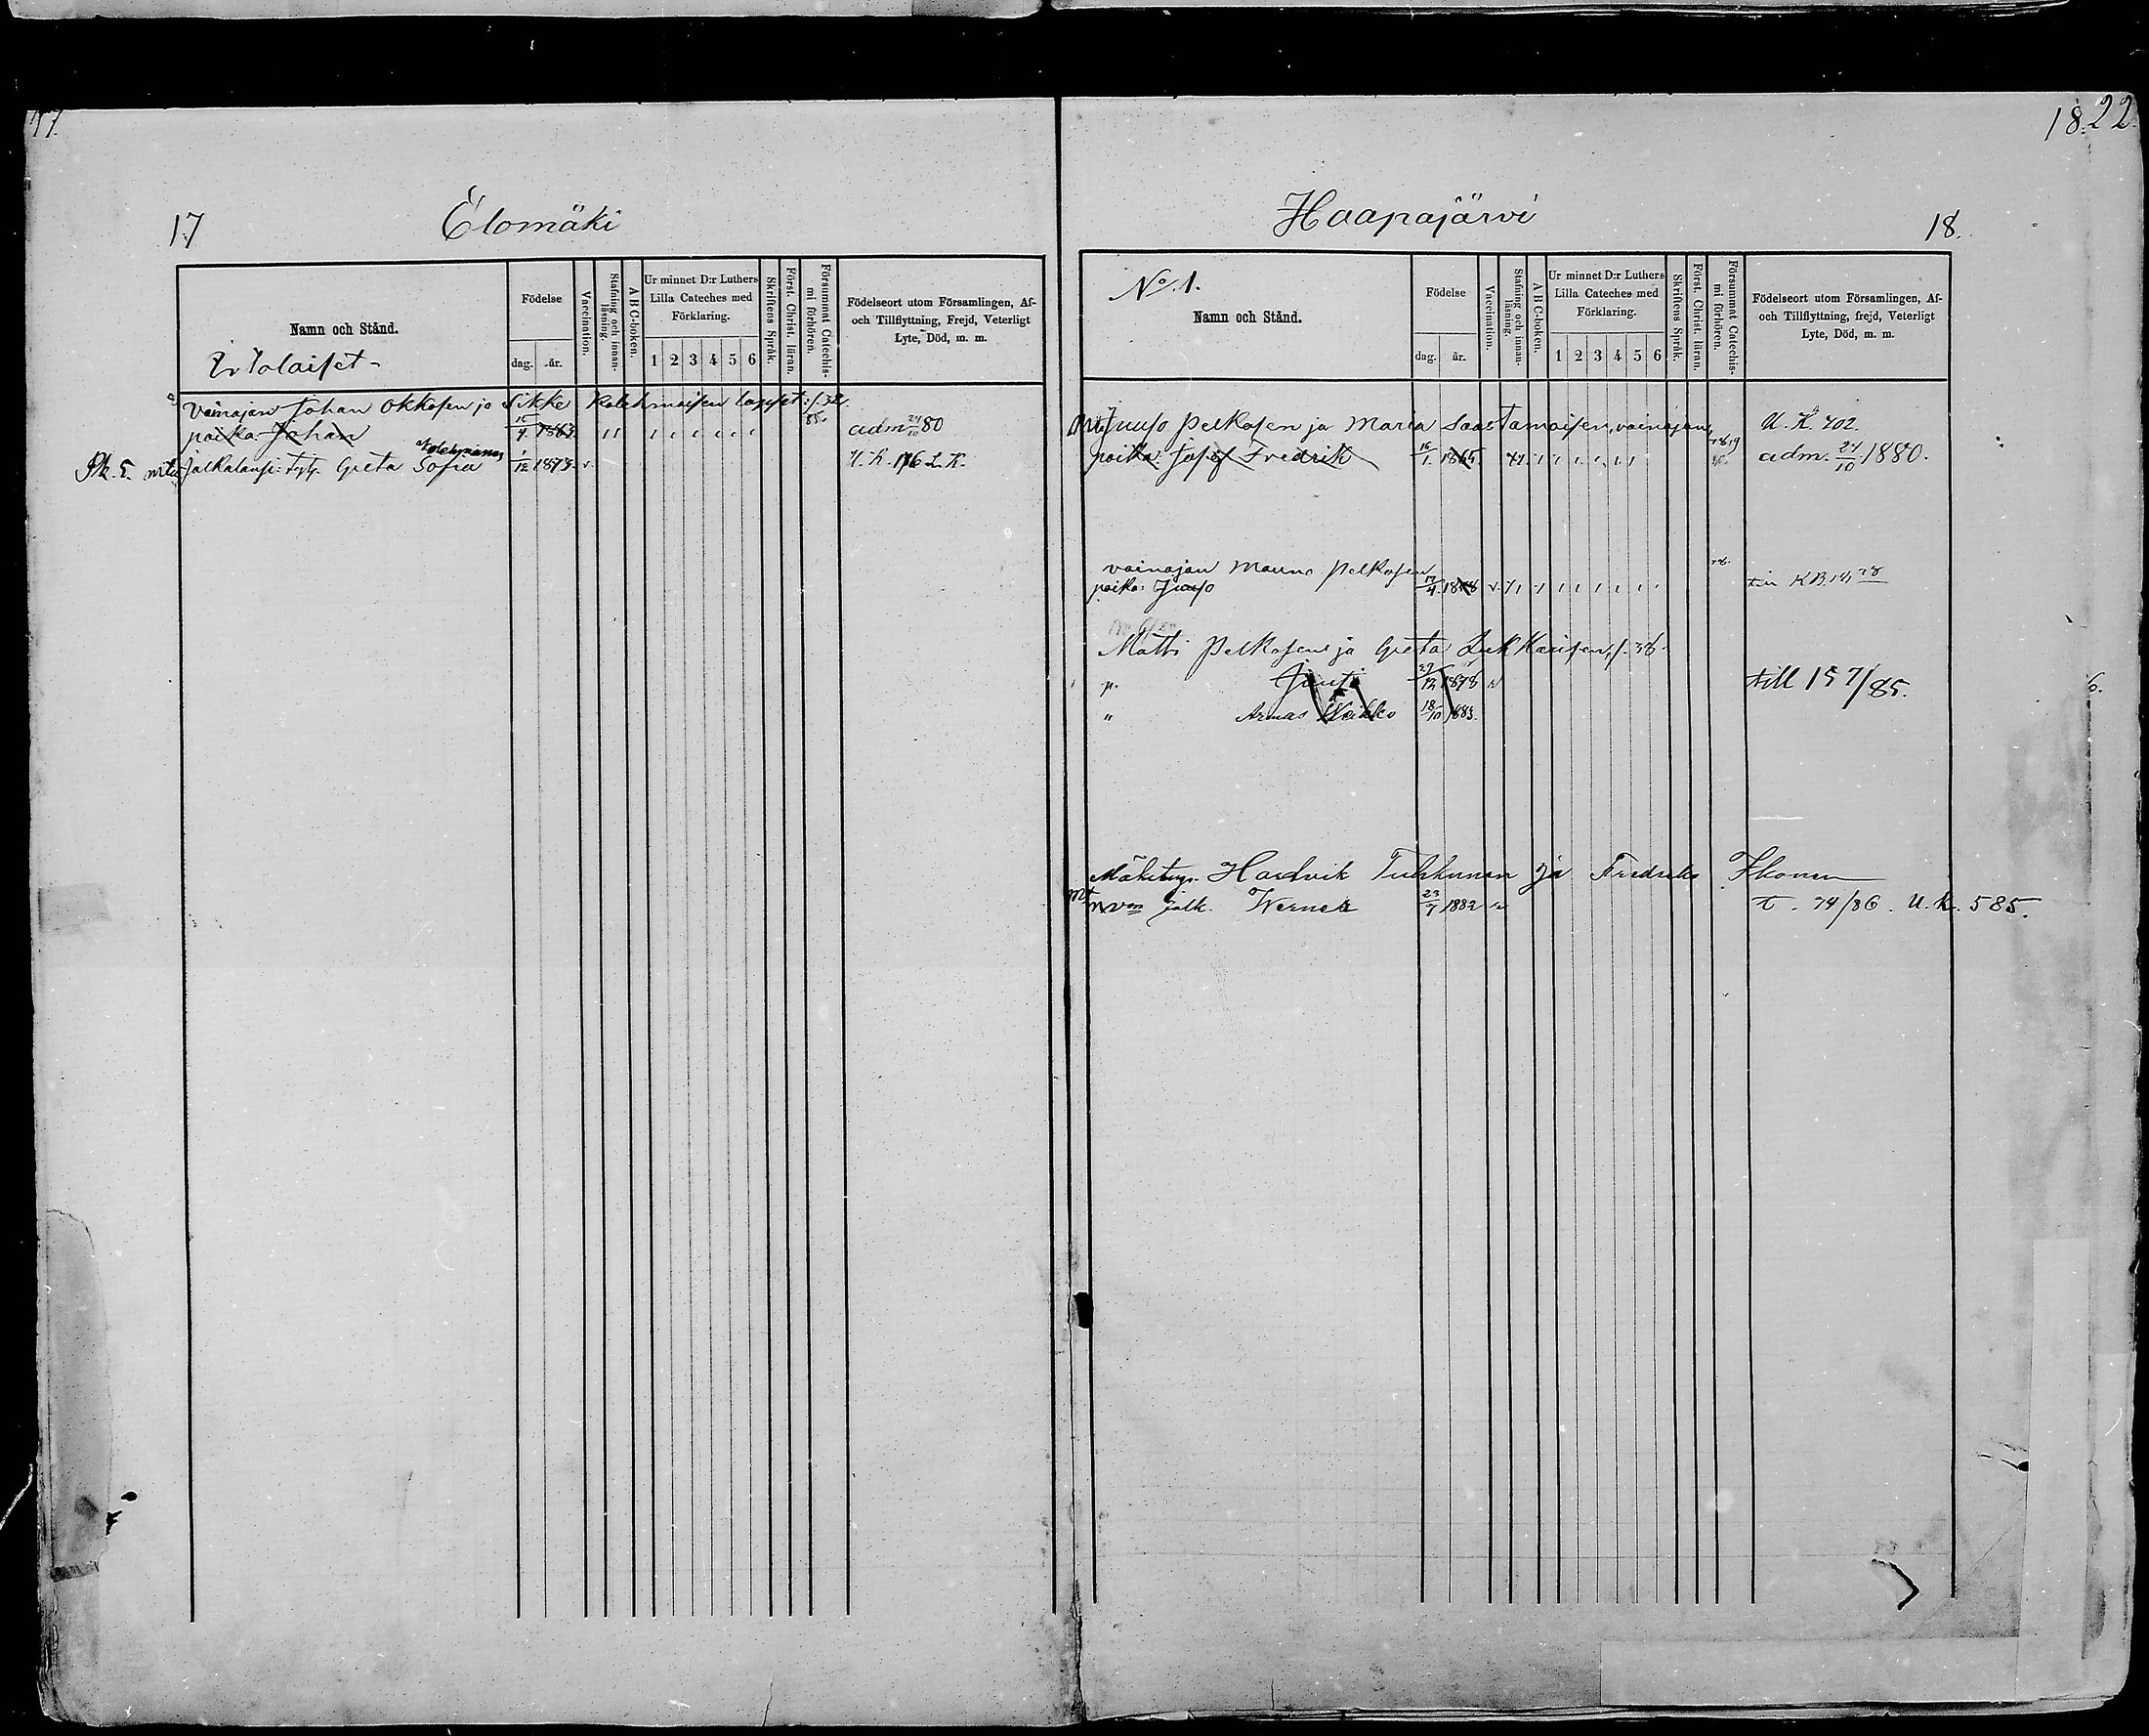 17
18. 22.
17 Elomäki
Namn och Stånd.
Födelse
dag. år.
Vaccination.
Stafning och innanläsning.
A B C-boken.
Ur minnet D:r Luthers Lilla Cateches med Förklaring.
1 2 3 4 5 6
Skriftens Språk.
Först. Christ. läran.
Försummat Catechismi förhören.
Födelseort utom Församlingen, Af- och Tillflyttning, Frejd, Veterligt Lyte, Död, m. m.
Vainajan Johan Okkosen ja Sikke Kolehmaisen lapset: s. 32.
poika Johan 15/4. 1863. 85. adm 24/10 80
Kolehmainen
Pk. 5. jalkalapsi: tytt. Greta Sofia 1/12 1873. v. U. K. 176 L. K.
Haapajärvi 18.
No. 1.
Namn och Stånd.
Födelse
dag. år.
Vaccination.
Stafning och innanläsning.
A B C-boken.
Ur minnet D:r Luthers Lilla Cateches med Förklaring.
1 2 3 4 5 6
Skriftens Språk.
Först. Christ. läran.
Försummat Catechismi förhören.
Födelseort utom Församlingen, Af- och Tillflyttning, frejd, Veterligt Lyte, Död, m. m.
Juuso Pelkosen ja Maria Saastamoisen, vainajan, U. K. 402.
poika: Josef Fredrik 16/1. 1865. adm. 24/10 1880.
vainajan Mauno Pelkosen
poika: Juuso 17/4. 18 v. K B. 141 78
Matts Pelkosen ja Greta Lukkarisen, s. 38.
p. Juuso 29/12 1878 v till 157/85.
" Armas Weikko 18/10 1883.
Mäkitups. Hardvik Tuhkunen ja Fredrika Ikonen
jalk. Werner 23/7 1882 v t. 74/86. U. k. 585.
6.